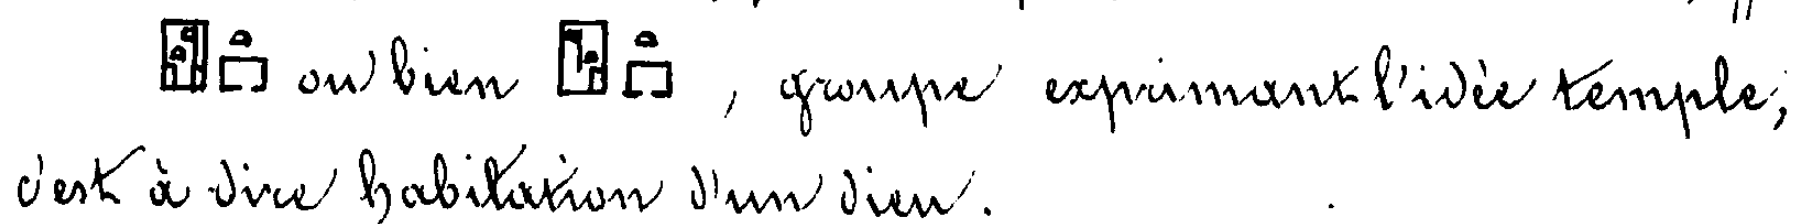 𓉗𓏏𓉐 ou bien 𓉗𓏏𓉐, groupe exprimant l'idée temple,
c'est à dire habitation d'un dieu.